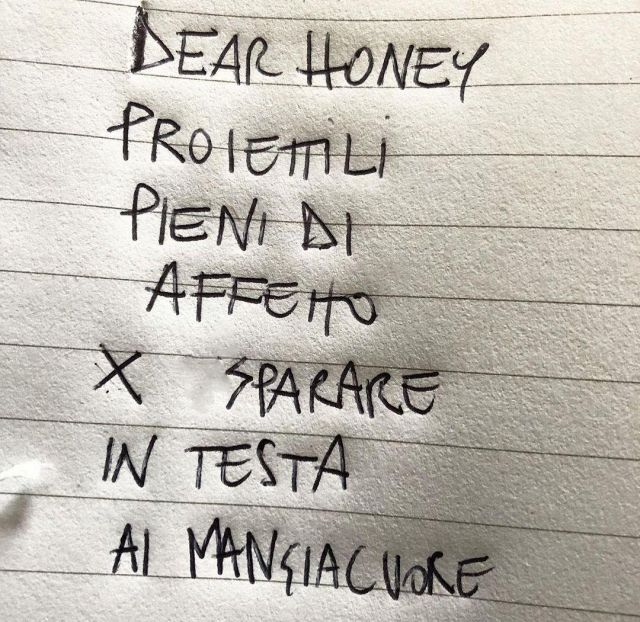 DEAR HONEY
PROIETTILI
PIENI DI
AFFETTO
X SPARARE
IN TESTA
AI MANGIACUORE